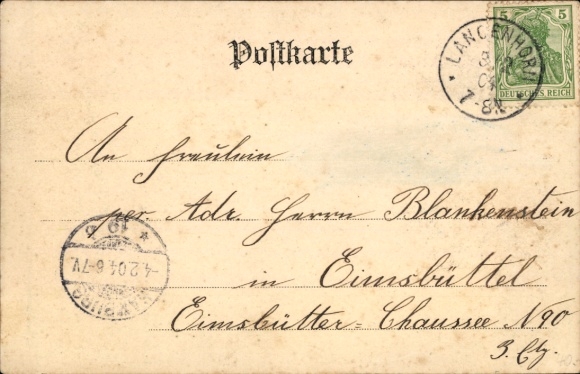 Postkarte
5 5
DEUTSCHES REICH
LANGENHORN
3 2
04
7-8N.
An Fräulein
per Adr. Herrn Blankenstein
in Eimsbüttel
Eimsbütter-Chaussee N 90
3. Etg.
* 19 b
-4.2.04.6-7V.
HAMBURG